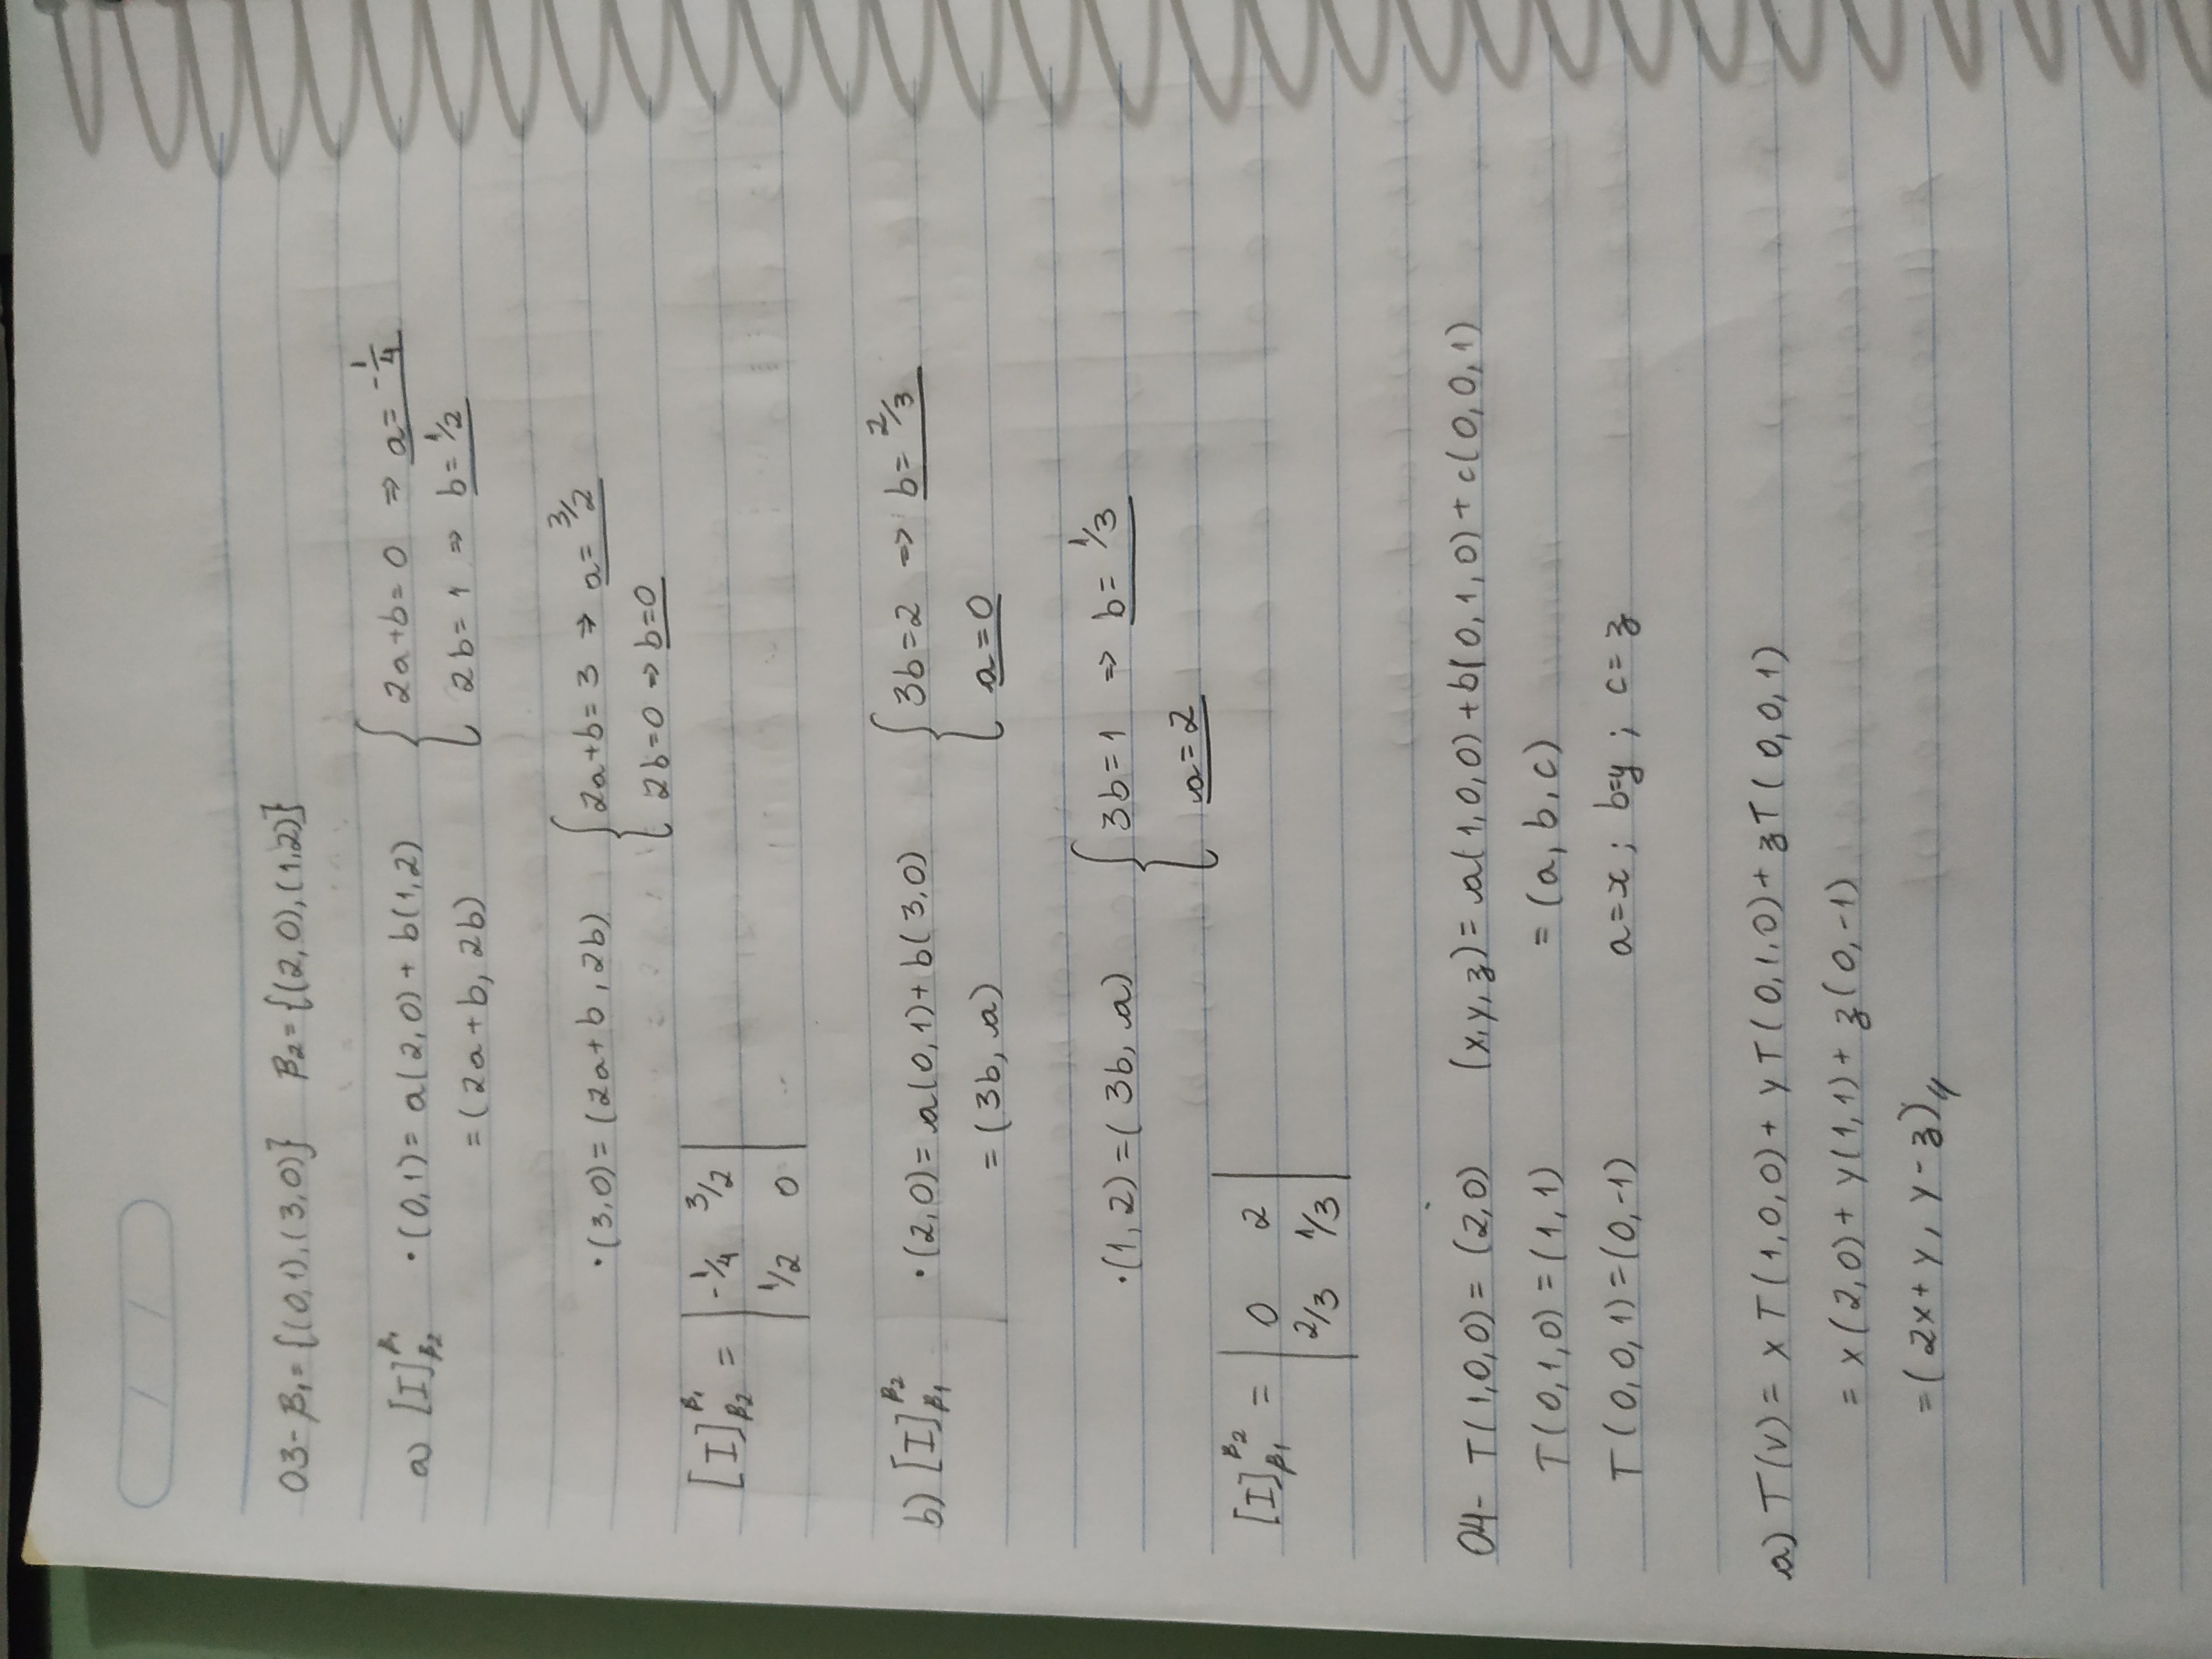 03- β₁={(0,1),(3,0)} β₂={(2,0),(1,2)}
a) [I]^β₁_β₂ •(0,1)=a(2,0)+b(1,2) { 2a+b=0 ⇒ a=-1/4
=(2a+b, 2b) 2b=1 ⇒ b=1/2
•(3,0)=(2a+b, 2b) { 2a+b=3 ⇒ a=3/2
2b=0 ⇒ b=0
[I]^β₁_β₂ = | -1/4 3/2 |
| 1/2 0 |
b) [I]^β₂_β₁ •(2,0)=a(0,1)+b(3,0) { 3b=2 ⇒ b=2/3
=(3b, a) a=0
•(1,2)=(3b, a) { 3b=1 ⇒ b=1/3
a=2
[I]^β₂_β₁ = | 0 2 |
| 2/3 1/3 |
04- T(1,0,0)=(2,0) (x,y,z)=a(1,0,0)+b(0,1,0)+c(0,0,1)
T(0,1,0)=(1,1) =(a,b,c)
T(0,0,1)=(0,-1) a=x; b=y; c=z
a) T(v)= xT(1,0,0)+yT(0,1,0)+zT(0,0,1)
= x(2,0)+y(1,1)+z(0,-1)
=(2x+y, y-z)//